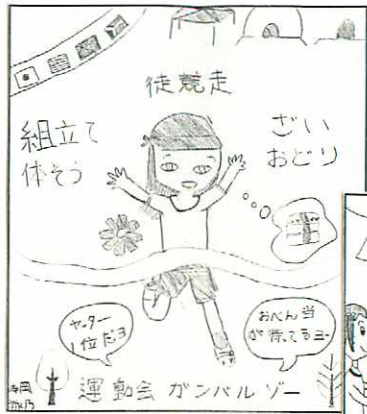 徒競走
組立て
体そう
ざい
おどり
ヤッター
1位だヨ
おべん当
が待ってるヨー
運動会 ガンバルゾー